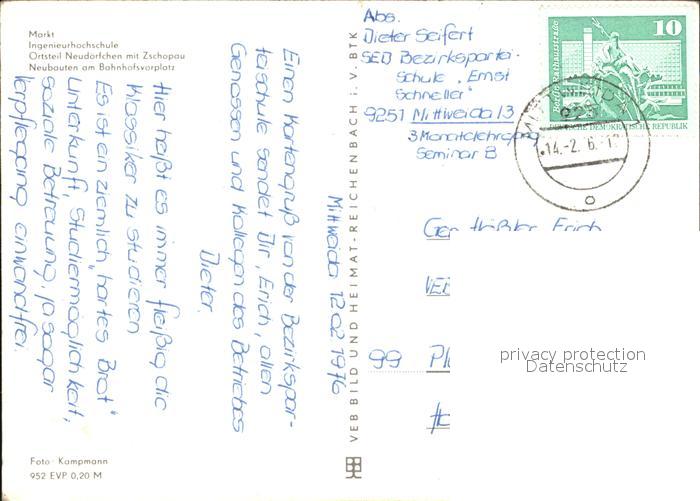 Markt
Ingenieurhochschule
Ortsteil Neudörfchen mit Zschopau
Neubauten am Bahnhofsvorplatz
Mittweida 12.02.1976
Einen Kartengruß von der Bezirkspar-
teischule sendet Dir, Erich, allen
Genossen und Kollegen des Betriebes
Dieter.
Hier heißt es immer fleißig die
Klassiker zu studieren
Es ist ein ziemlich „hartes Brot"
Unterkunft, Studiermöglichkeit,
soziale Betreuung, ja sogar
Verpflegung einwandfrei.
Foto: Kampmann
952 EVP 0,20 M
VEB BILD UND HEIMAT · REICHENBACH i. V. BTK
Abs.
Dieter Seifert
SED Bezirkspartei-
Schule „Ernst
Schneller"
9251 Mittweida 13
3 Monatelehrgang
Seminar B
10
Berlin, Rathausstraße
DEUTSCHE DEMOKRATISCHE REPUBLIK
MITTWEIDA
14.-2. 6.-12
a
Gen Erich
VEB
99 Pl
privacy protection
Datenschutz